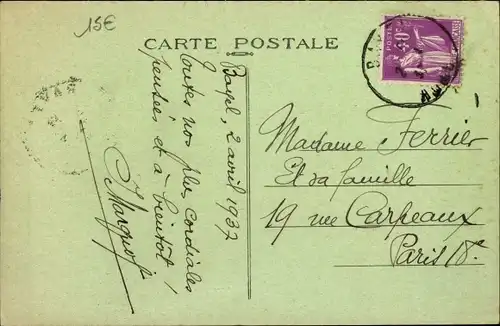 15€
CARTE POSTALE
Bayel, 2 avril 1937
Toutes nos plus cordiales
pensées et à bientôt !
Madame Ferrier
Et sa famille
19 rue Carpeaux
Paris 18e
POSTES
40c